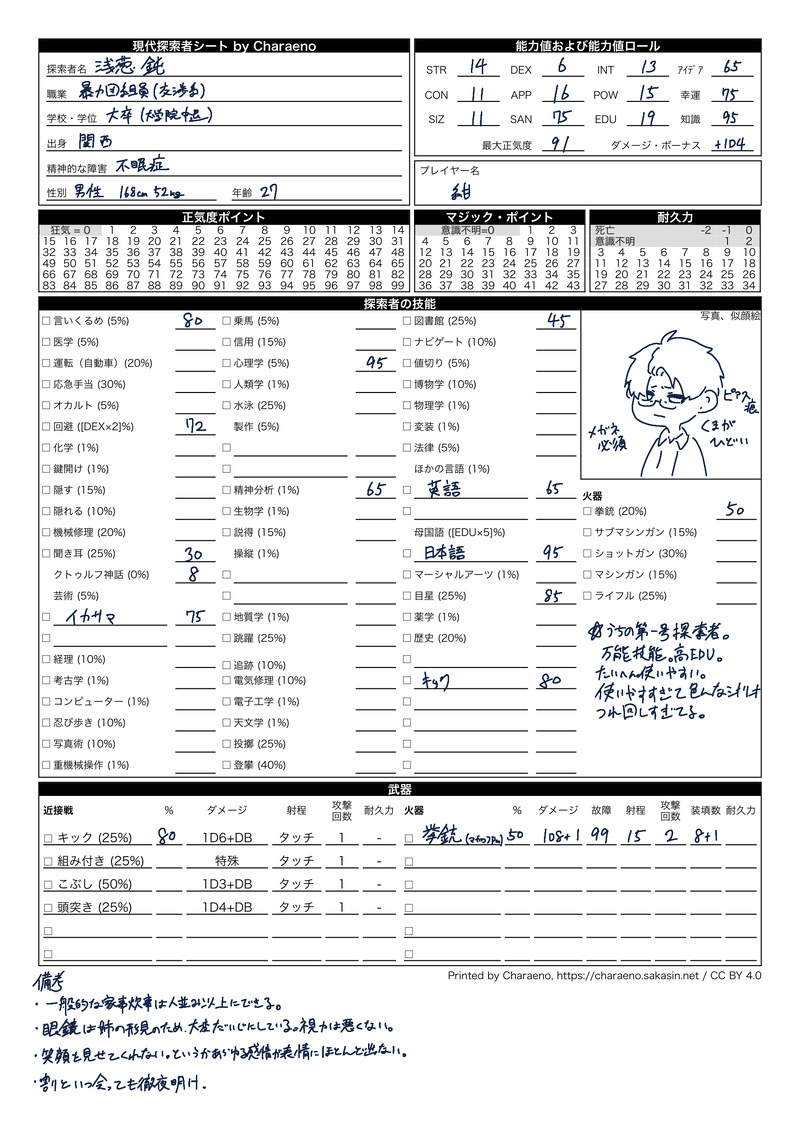 現代探索者シート by Charaeno
探索者名 浅葱 鈍
職業 暴力団組員(交渉系)
学校・学位 大卒(大学院中退)
出身 関西
精神的な障害 不眠症
性別 男性 168cm 52kg 年齢 27
能力値および能力値ロール
STR 14 DEX 6 INT 13 アイデア 65
CON 11 APP 16 POW 15 幸運 75
SIZ 11 SAN 75 EDU 19 知識 95
最大正気度 91 ダメージ・ボーナス +1D4
プレイヤー名
紺
正気度ポイント
狂気 = 0 1 2 3 4 5 6 7 8 9 10 11 12 13 14
15 16 17 18 19 20 21 22 23 24 25 26 27 28 29 30 31
32 33 34 35 36 37 38 39 40 41 42 43 44 45 46 47 48
49 50 51 52 53 54 55 56 57 58 59 60 61 62 63 64 65
66 67 68 69 70 71 72 73 74 75 76 77 78 79 80 81 82
83 84 85 86 87 88 89 90 91 92 93 94 95 96 97 98 99
マジック・ポイント
意識不明=0 1 2 3
4 5 6 7 8 9 10 11
12 13 14 15 16 17 18 19
20 21 22 23 24 25 26 27
28 29 30 31 32 33 34 35
36 37 38 39 40 41 42 43
耐久力
死亡 -2 -1 0
意識不明 1 2
3 4 5 6 7 8 9 10
11 12 13 14 15 16 17 18
19 20 21 22 23 24 25 26
27 28 29 30 31 32 33 34
探索者の技能
言いくるめ (5%) 80
医学 (5%)
運転（自動車）(20%)
応急手当 (30%)
オカルト (5%)
回避 ([DEX×2]%) 72
化学 (1%)
鍵開け (1%)
隠す (15%)
隠れる (10%)
機械修理 (20%)
聞き耳 (25%) 30
クトゥルフ神話 (0%) 8
芸術 (5%)
イカサマ 75
経理 (10%)
考古学 (1%)
コンピューター (1%)
忍び歩き (10%)
写真術 (10%)
重機械操作 (1%)
乗馬 (5%)
信用 (15%)
心理学 (5%) 95
人類学 (1%)
水泳 (25%)
製作 (5%)
精神分析 (1%) 65
生物学 (1%)
説得 (15%)
操縦 (1%)
地質学 (1%)
跳躍 (25%)
追跡 (10%)
電気修理 (10%)
電子工学 (1%)
天文学 (1%)
投擲 (25%)
登攀 (40%)
図書館 (25%) 45
ナビゲート (10%)
値切り (5%)
博物学 (10%)
物理学 (1%)
変装 (1%)
法律 (5%)
ほかの言語 (1%)
英語 65
母国語 ([EDU×5]%)
日本語 95
マーシャルアーツ (1%)
目星 (25%) 85
薬学 (1%)
歴史 (20%)
キック 80
写真、似顔絵
ピアス
痕
メガネ
必須
くまが
ひどい
火器
拳銃 (20%) 50
サブマシンガン (15%)
ショットガン (30%)
マシンガン (15%)
ライフル (25%)
うちの第一号探索者。
万能技能。高EDU。
たいへん使いやすい。
使いやすすぎて色んなシナリオ
つれ回しすぎてる。
武器
近接戦 % ダメージ 射程 攻撃回数 耐久力
キック (25%) 80 1D6+DB タッチ 1 -
組み付き (25%) 特殊 タッチ 1 -
こぶし (50%) 1D3+DB タッチ 1 -
頭突き (25%) 1D4+DB タッチ 1 -
火器 % ダメージ 故障 射程 攻撃回数 装填数 耐久力
拳銃 50 1D8+1 99 15 2 8+1
Printed by Charaeno, https://charaeno.sakasin.net / CC BY 4.0
備考
・一般的な家事炊事は人並み以上にできる。
・眼鏡は姉の形見のため、大変だいじにしている。視力は悪くない。
・笑顔を見せてくれない。というかあらゆる感情が表情にほとんど出ない。
・割といつ会っても徹夜明け.